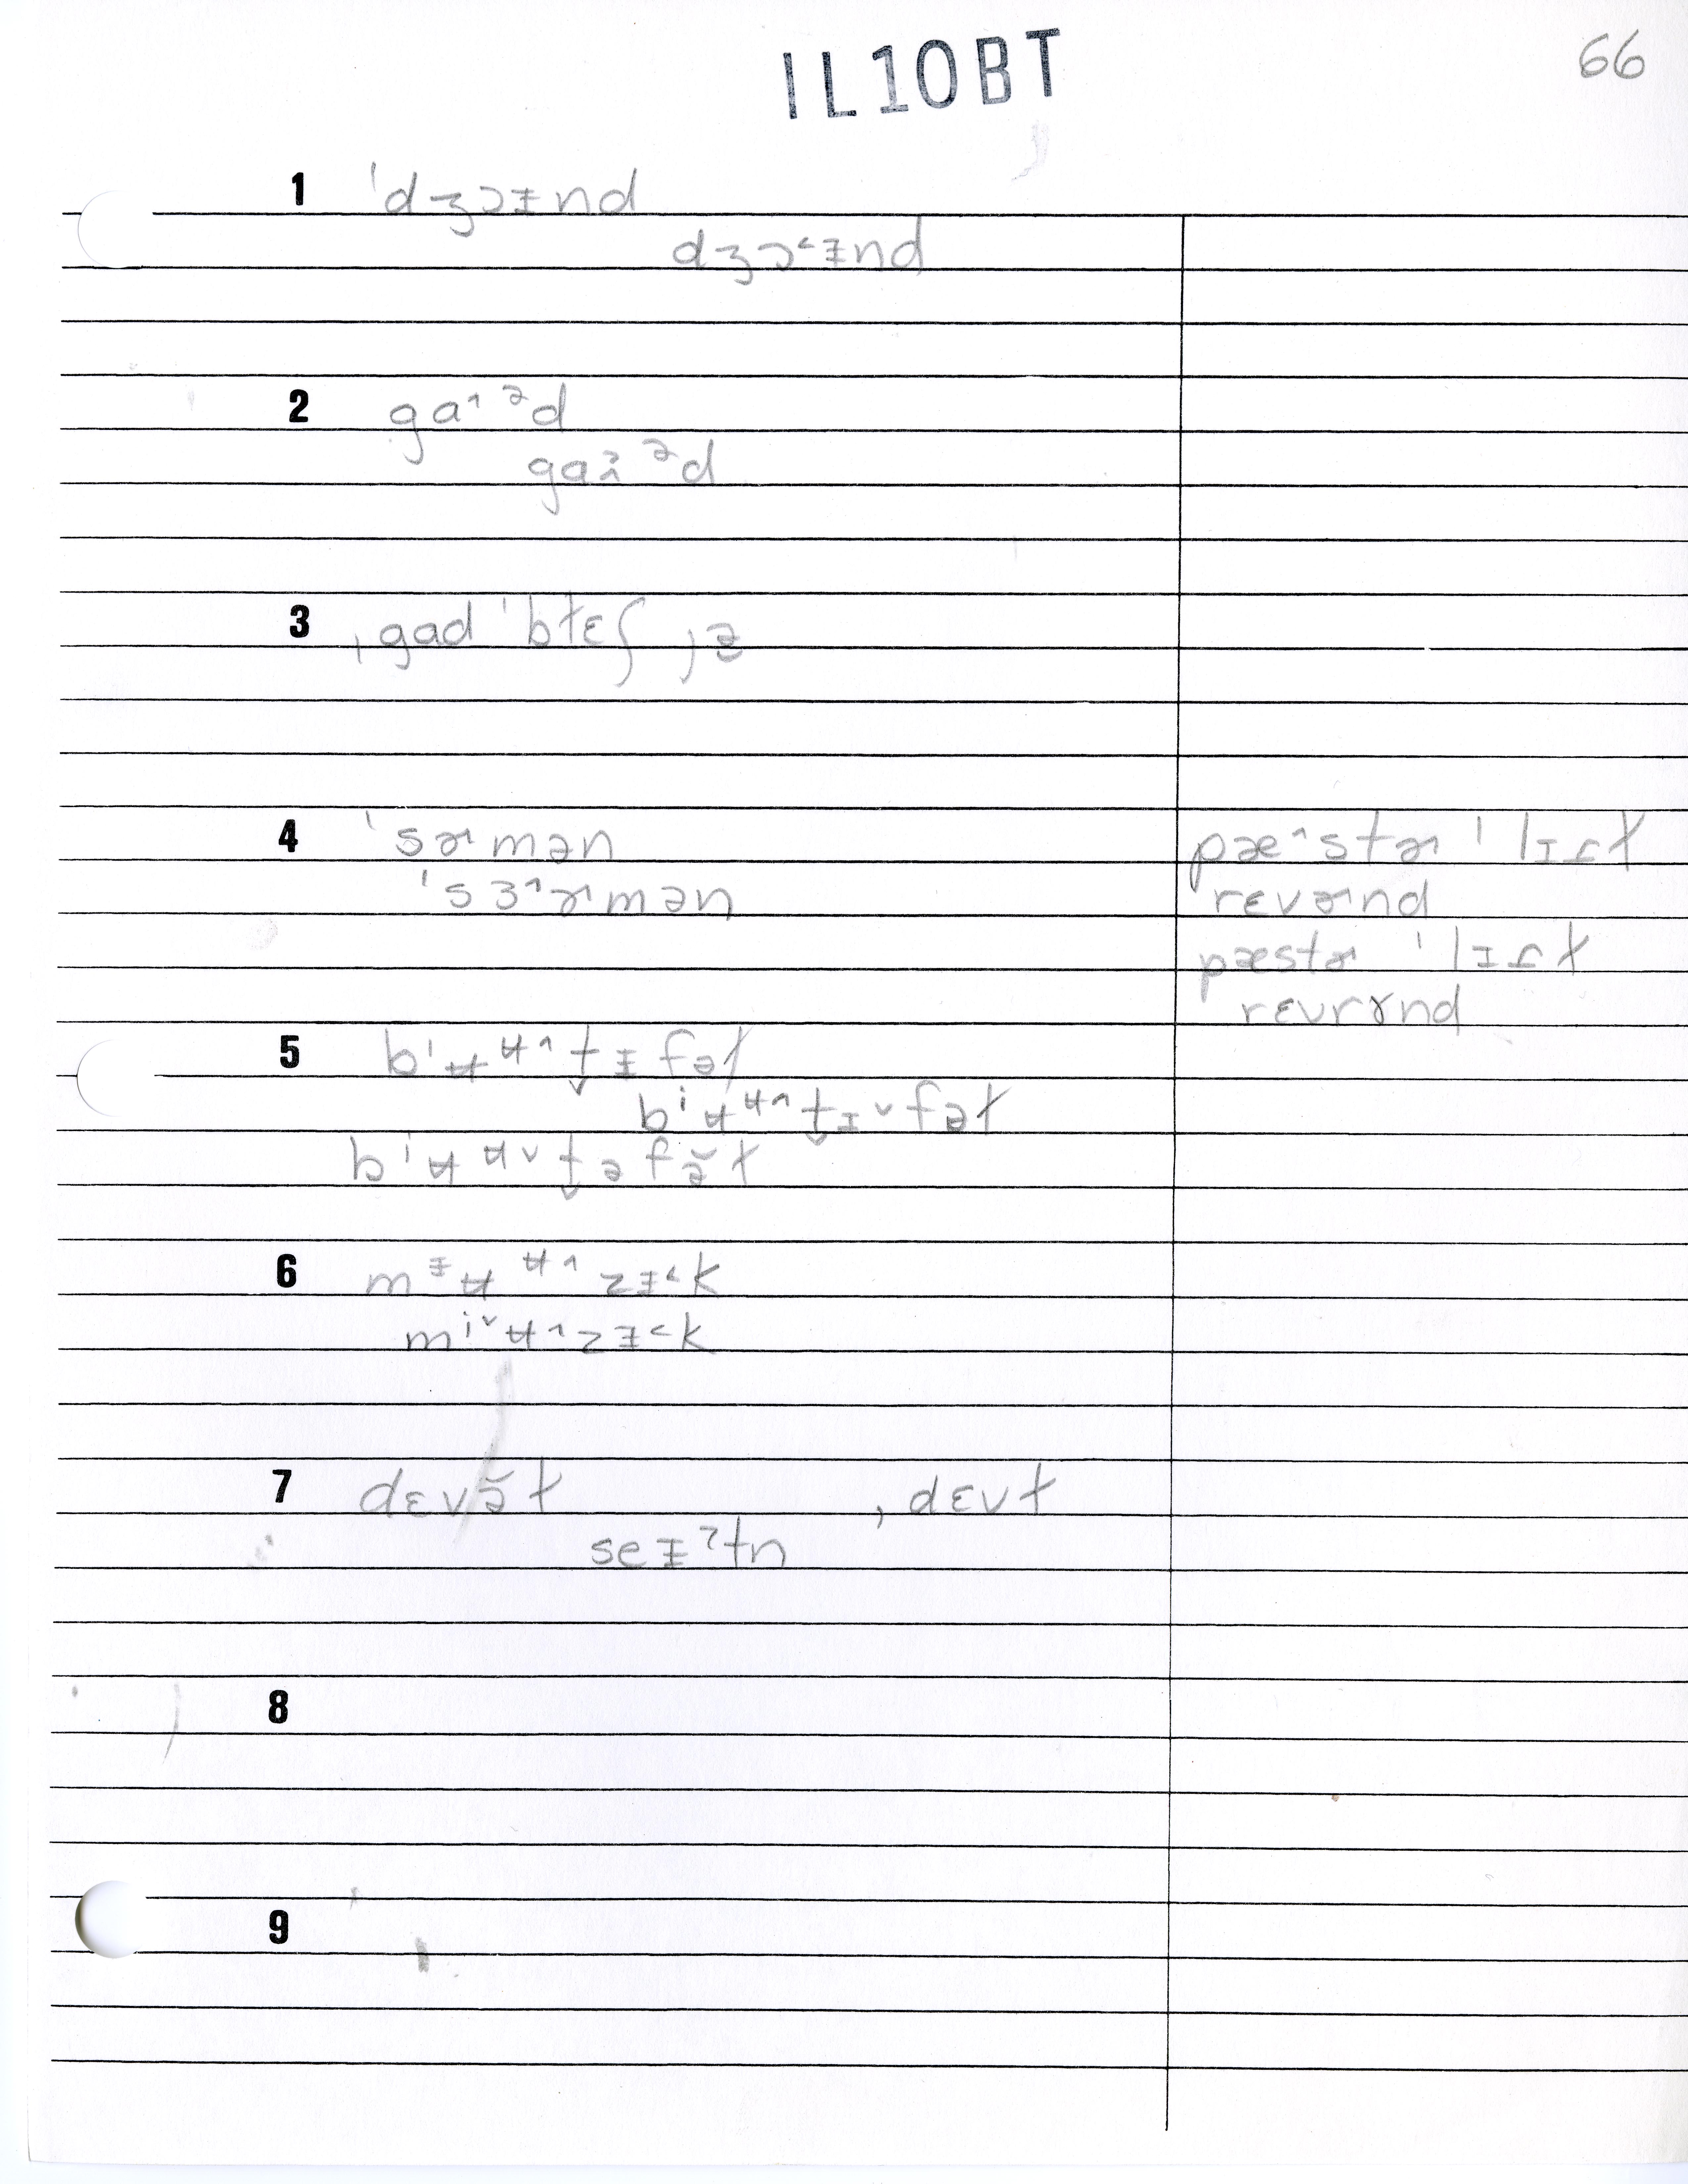 IL10BT
66
1 ˈdʒɔɪnd
dʒɔ˂ɪnd
2 ga˄ ᵊd
ga˄̆ ᵊd
3 ˌgad ˈbɫɛʃ ˌə
4 ˈsɚmən
ˈsɜ˄ɚmən
pæ˄stɚ ˈlɪɾɫ
rɛvɚnd
pæstɚ ˈlɪɾɫ
rɛvrɤnd
5 bⁱʉ ᶶ˄ t̬ɪ fəɫ
bⁱʉ ᶶ˄ t̬ɪ˅ fəɫ
bⁱʉ ᶶ˅ t̬ə fə̆ɫ
6 mᶧʉ ᶶ˄ zɪ˂k
mⁱ˅ʉ˄zɪ˂k
7 dɛvə̆ɫ , dɛvɫ
seɪˀtn
8
9